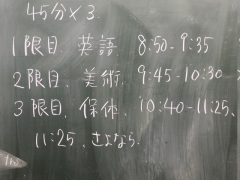 45分×3.
1限目. 英語 8:50-9:35
2限目. 美術. 9:45-10:30
3限目. 保体. 10:40-11:25.
11:25. さよなら.